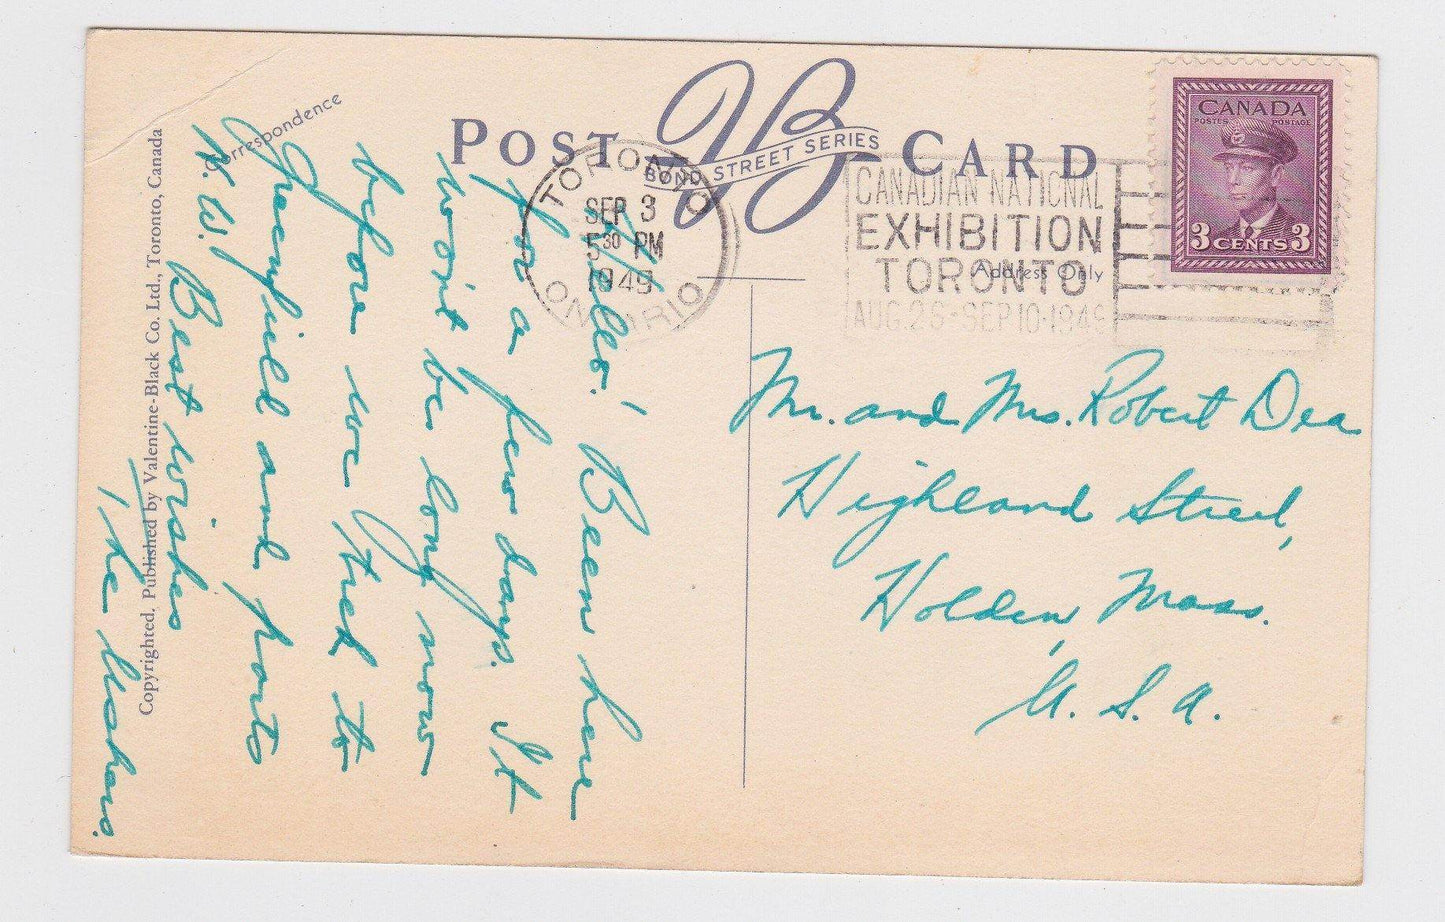 POST CARD
VB
BOND STREET SERIES
Correspondence
Address Only
TORONTO
SEP 3
5 30 PM
1949
ONTARIO
CANADIAN NATIONAL
EXHIBITION
TORONTO
AUG. 26 - SEP 10. 1949
CANADA
POSTES POSTAGE
3 CENTS 3
Hello! Been here
for a few days. It
won't be long now
before we trek to
Greenfield and parts
N. W. Best wishes
The
Mr. and Mrs. Robert Dea
Highland Street,
Holden, Mass.
U. S. A.
Copyrighted. Published by Valentine-Black Co. Ltd., Toronto, Canada